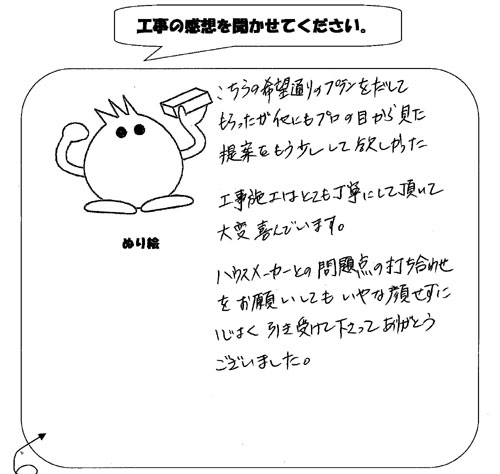 工事の感想を聞かせてください。
こちらの希望通りのプランをだして
もらったが他にもプロの目から見た
提案をもう少しして欲しかった
工事施工はとても丁寧にして頂いて
大変喜んでいます。
ハウスメーカーとの問題点の打ち合わせ
をお願いしてもいやな顔せずに
心よく引き受けて下さってありがとう
ございました。
ぬり絵